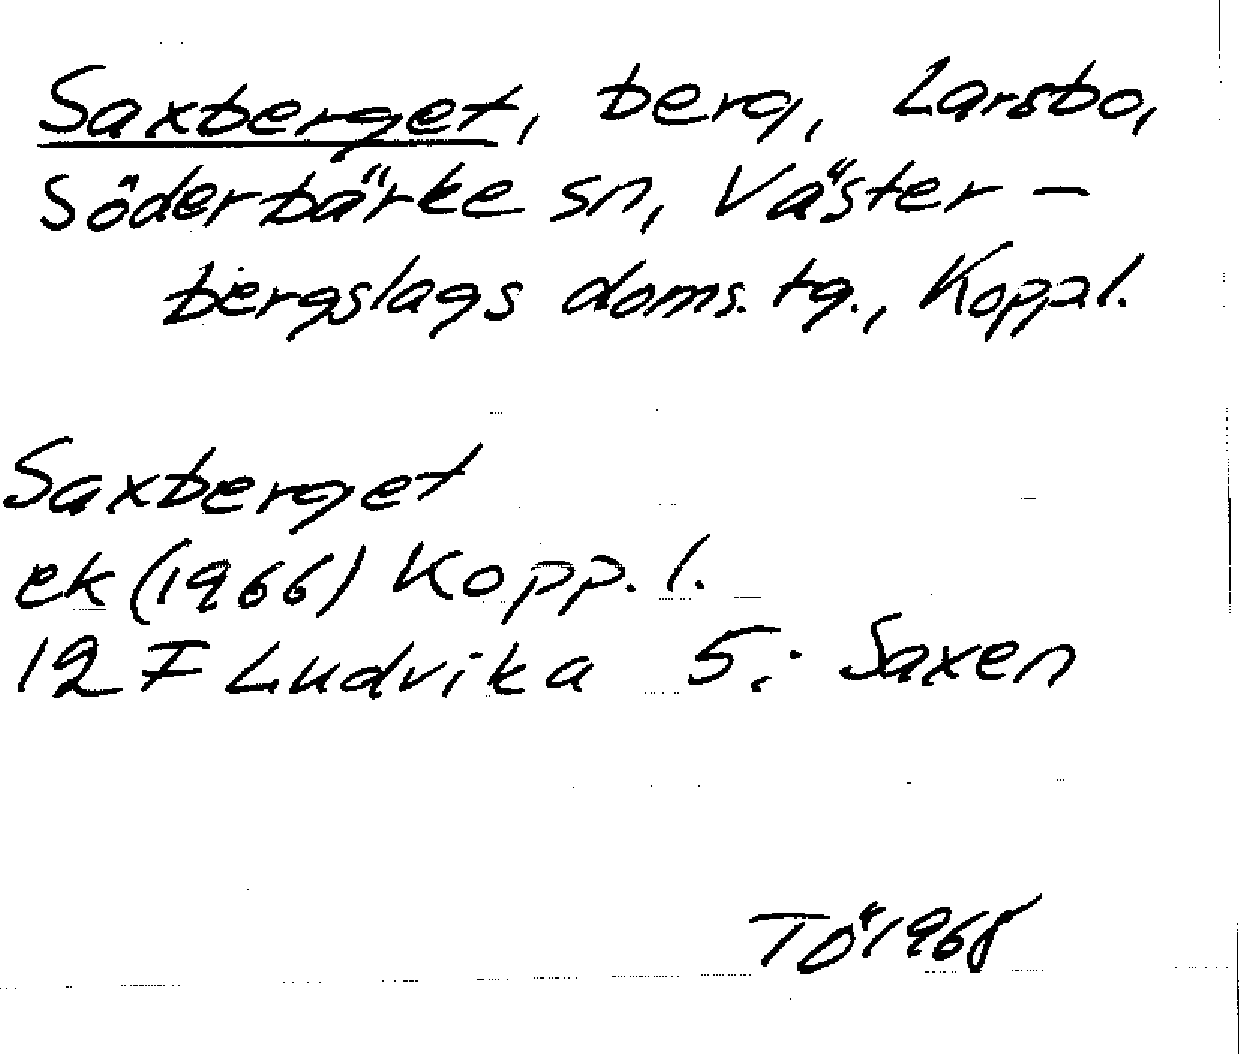 Saxberget, berg, Larsbo,
Söderbärke sn, Väster-
bergslags doms. tg., Kopp.l.
Saxberget
ek (1966) Kopp. l.
12 F Ludvika 5: Saxen
TÖ 1968